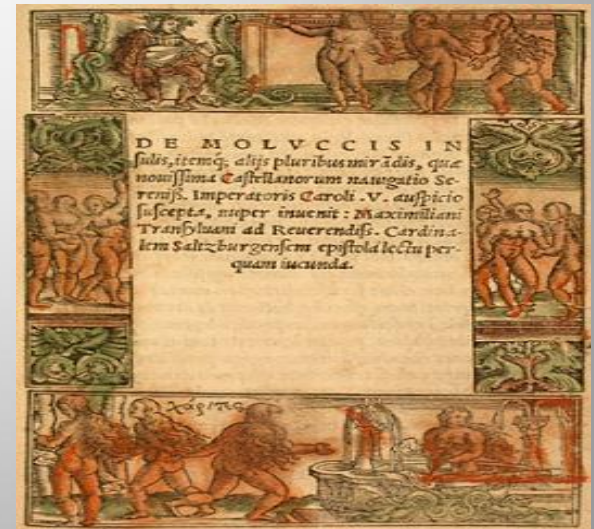 DE MOLVCCIS IN
sulis, itemq; alijs pluribus mirādis, quæ
nouissima Castellanorum nauigatio Se-
reniss. Imperatoris Caroli .V. auspicio
suscepta, nuper inuenit: Maximiliani
Transyluani ad Reuerendiss. Cardina-
lem Saltzburgensem epistola lectu per-
quam iucunda.
χάριτες